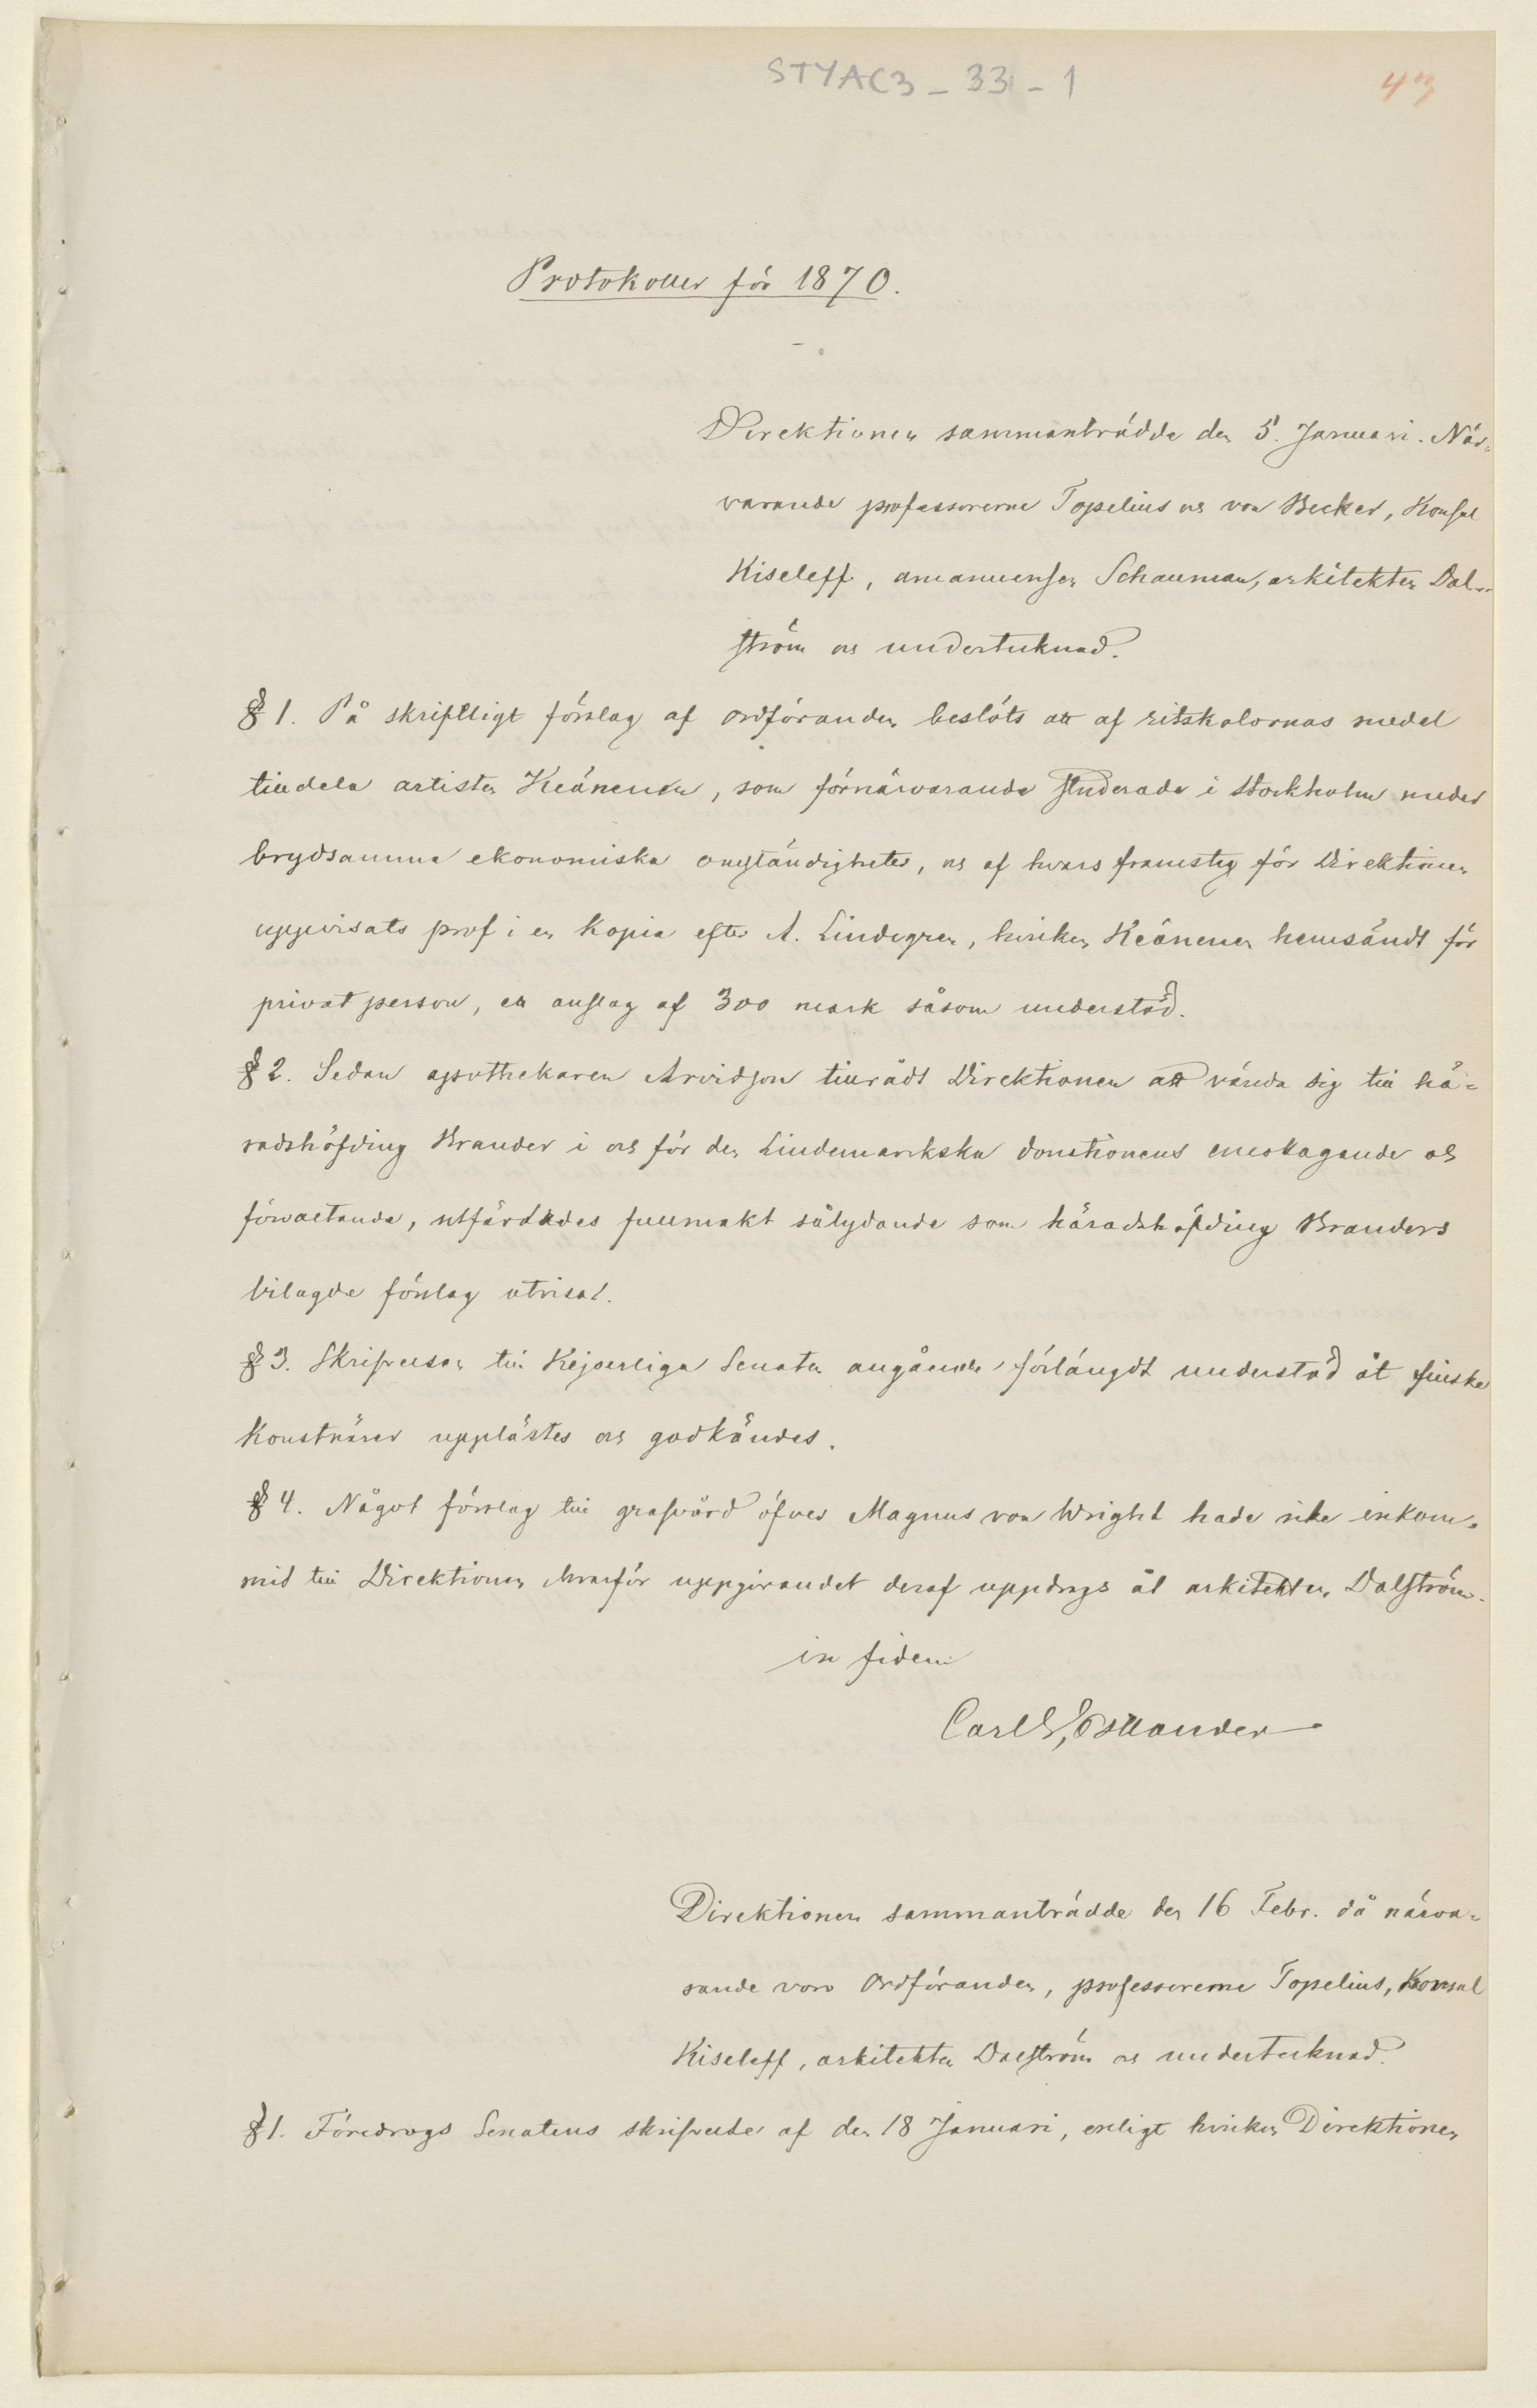 STYAC3-33-1
43
Protokoller för 1870.
Direktionen sammanträdde den 5. Januari. När-
varande professorerne Topelius och von Becker, Konsul
Kiseleff, amanuensen Schauman, arkitekten Dal-
ström och undertecknad.
§ 1. På skriftligt förslag af ordföranden beslöts att af ritskolornas medel
tilldela artisten Keänenen, som förnärvarande studerade i Stockholm under
brydsamma ekonomiska omständigheter, och af hvars framsteg för Direktionen
uppvisats prof i en kopia efter A. Lindegren, hvilken Keänenen hemsändt för
privat person, ett anslag af 300 mark såsom understöd.
§ 2. Sedan apothekaren Arvidson tillrådt Direktionen att vända sig till hä-
radshöfding Brander i och för den Lindemarkska donationens emottagande och
förvaltande, utfärdades fullmakt sålydande som häradshöfding Branders
bilagde förslag utvisar.
§ 3. Skrifvelsen till Kejserliga Senaten angående förlängdt understöd åt finska
Konstnärer upplästes och godkändes.
§ 4. Något förslag till grafvård öfver Magnus von Wright hade icke inkom-
mit till Direktionen hvarför uppgörandet deraf uppdrogs åt arkitekten Dalström.
in fidem
Carl G. Estlander
Direktionen sammanträdde den 16 Febr. då närva-
rande voro Ordföranden, professorerne Topelius, Konsul
Kiseleff, arkitekten Dalström och undertecknad.
§ 1. Föredrogs Senatens skrifvelse af den 18 Januari, enligt hvilken Direktionen